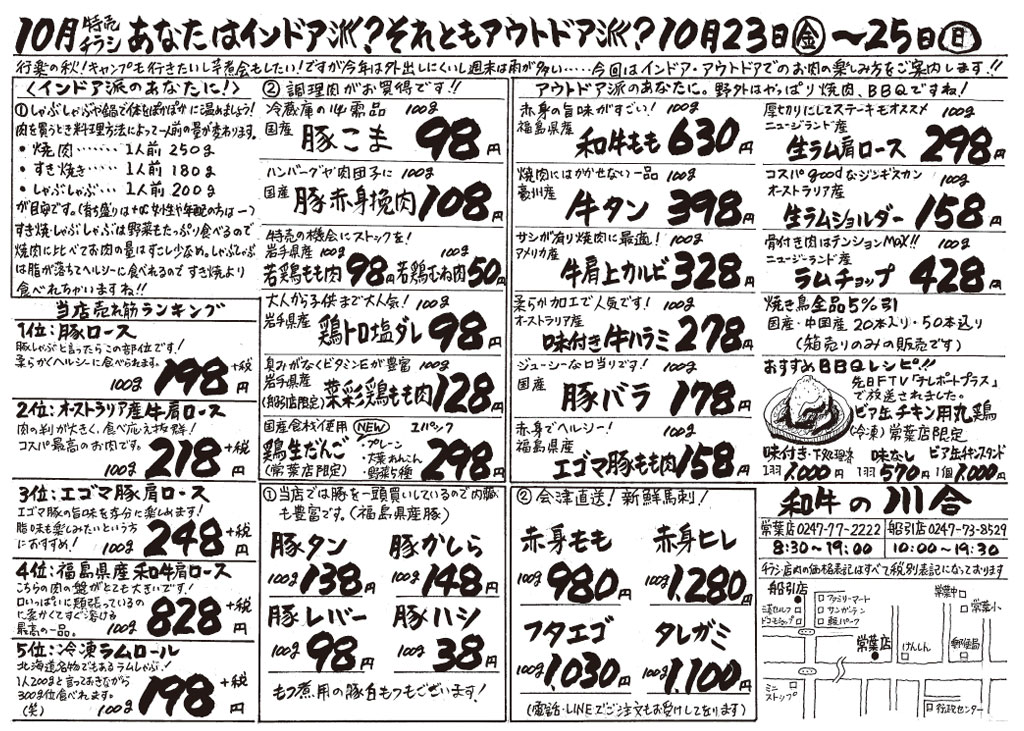 10月 特売チラシ あなたはインドア派?それともアウトドア派?10月23日㊎～25日㊐
行楽の秋!キャンプも行きたいし芋煮会もしたい!ですが今年は外出しにくいし週末は雨が多い……今回はインドア・アウトドアでのお肉の楽しみ方をご案内します!!
〈インドア派のあなたに!〉
①しゃぶしゃぶや鍋で体をぽかぽかに温めましょう!
肉を買うとき料理方法によって一人前の量が変わります。
• 焼肉……1人前 250g
• すき焼き…1人前 180g
• しゃぶしゃぶ…1人前 200g
が目安です。(育ち盛りは+α 女性や年配の方は−)
すき焼・しゃぶしゃぶは野菜もたっぷり食べるので
焼肉に比べてお肉の量はすこし少なめ。しゃぶしゃぶ
は脂が落ちてヘルシーに食べれるのですき焼より
食べれちゃいますね!!
当店売れ筋ランキング
1位:豚ロース
豚しゃぶと言ったらこの部位です!
柔らかくヘルシーに食べられます。
100g 198円+税
2位:オーストラリア産牛肩ロース
肉の判が大きく、食べ応え抜群!
コスパ最高のお肉です。
100g 218円+税
3位:エゴマ豚肩ロース
エゴマ豚の旨味を存分に楽しめます!
脂味も楽しみたいという方
におすすめ!
100g 248円+税
4位:福島県産和牛肩ロース
こちらの肉の盤がとても大きいです!
口いっぱいに頬張っているの
に柔かくてすぐ溶ける
最高の一品。 100g 828円+税
5位:冷凍ラムロール
北海道名物でもあるラムしゃぶ!
1人200gと言っておきながら
300g位食べれます。
(笑) 100g 198円+税
②調理肉がお買得です!!
冷蔵庫の必需品 100g
国産 豚こま 98円
ハンバーグや肉団子に 100g
国産 豚赤身挽肉 108円
特売の機会にストックを!
岩手県産 100g 若鶏もも肉 98円 100g 若鶏むね肉 50円
大人から子供まで大人気! 100g
岩手県産 鶏トロ塩ダレ 98円
臭みがなくビタミンEが豊富 100g
岩手県産 (船引店限定) 菜彩鶏もも肉 128円
国産食材使用 NEW 1パック
鶏生だんご ・プレーン
・大葉れんこん
(常葉店限定) ・野菜5種 298円
①当店では豚を一頭買いしているので内臓
も豊富です。(福島県産豚)
豚タン 100g 138円
豚かしら 100g 148円
豚レバー 100g 98円
豚ハシ 100g 38円
もつ煮用の豚白もつもございます!
アウトドア派のあなたに。野外はやっぱり焼肉、BBQですね!
赤身の旨味がすごい! 100g
福島県産 和牛もも 630円
焼肉にはかかせない一品 100g
豪州産 牛タン 398円
サシが有り焼肉に最適! 100g
アメリカ産 牛肩上カルビ 328円
柔らか加工で人気です! 100g
オーストラリア産 味付き牛ハラミ 278円
ジューシーな口当りです! 100g
国産 豚バラ 178円
赤身でヘルシー! 100g
福島県産 エゴマ豚もも肉 158円
厚切りにしてステーキもオススメ 100g
ニュージーランド産 生ラム肩ロース 298円
コスパgoodなジンギスカン 100g
オーストラリア産 生ラムショルダー 158円
骨付き肉はテンションMAX!! 100g
ニュージーランド産 ラムチョップ 428円
焼き鳥全品5%引
国産・中国産 20本入り・50本込り
(箱売りのみの販売です)
おすすめBBQレシピ!!
先日FTV「テレポートプラス」
で放送されました。
ビア缶チキン用丸鶏
(冷凍)常葉店限定
味付き・下処理済 味なし ビア缶チキンスタンド
1羽 1,000円 1羽 570円 1個 1,000円
②会津直送!新鮮馬刺!
赤身もも 100g 980円
赤身ヒレ 100g 1,280円
フタエゴ 100g 1,030円
タレガミ 100g 1,100円
(電話・LINEでご注文もお受けしております)
和牛の川合
常葉店0247-77-2222 船引店0247-73-8529
8:30～19:00 10:00～19:30
チラシ店内の価格表記はすべて税別表記になっております
船引店
ファミリーマート
サンガーデン
軽パーク
ドコモショップ
ミニストップ
常葉店
けんしん
常葉中
常葉小
郵便局
行政センター